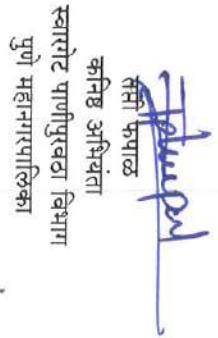 कनिष्ठ अभियंता
स्वारगेट पाणीपुरवठा विभाग
पुणे महानगरपालिका